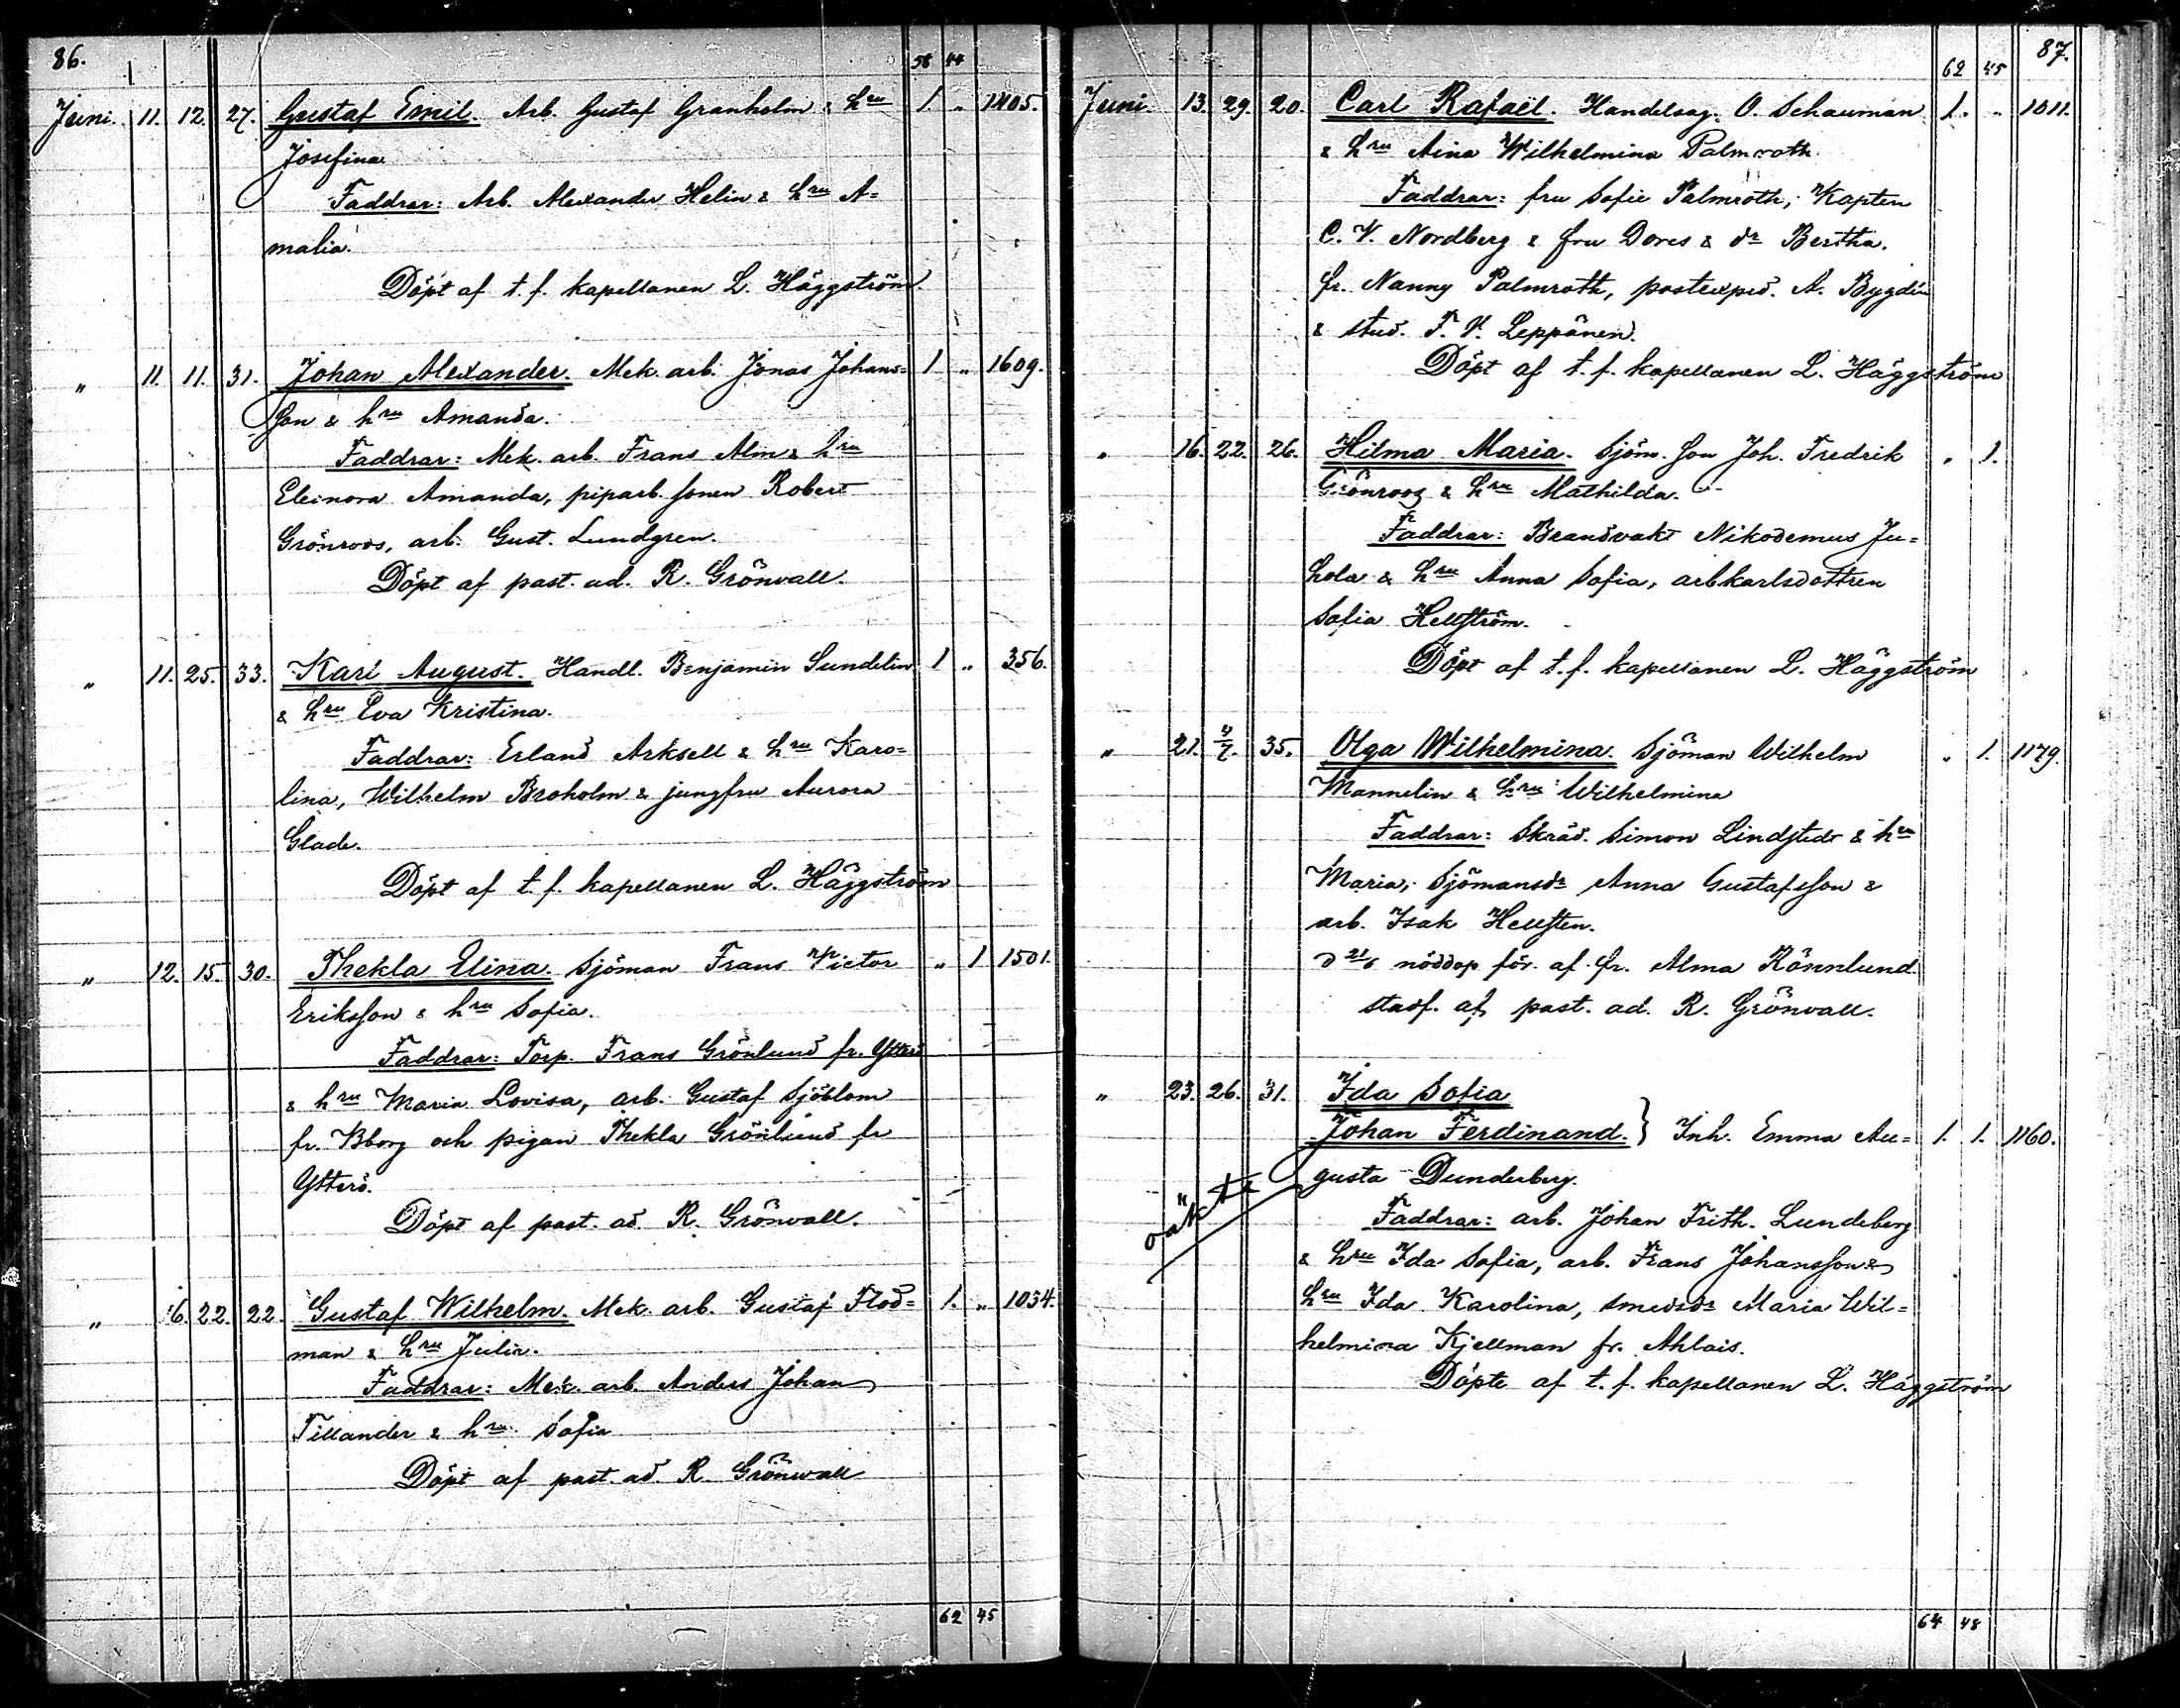 86.
58 44
Juni. 11. 12. 27. Gustaf Emil. Arb. Gustaf Granholm & hru 1 „ 1405.
Josefina
Faddrar: Arb. Alexander Helin & hru A=
malia.
Döpt af t. f. kapellanen L. Häggström
„ 11. 11. 31. Johan Alexander. Mek. arb. Jonas Johans= 1 „ 1609.
son & hru Amanda.
Faddrar: Mek. arb. Frans Alm & hru
Eleonora Amanda, piparb. sonen Robert
Grönroos, arb. Gust. Lundgren.
Döpt af past. ad. R. Grönvall.
„ 11. 25. 33. Karl August. Handl. Benjamin Sundelin 1 „ 356.
& hru Eva Kristina.
Faddrar: Erland Arksell & hru Karo=
lina, Wilhelm Broholm & jungfru Aurora
Glade.
Döpt af t. f. kapellanen L. Häggström
„ 12. 15. 30. Thekla Elina. Sjöman Frans Victor „ 1 1501.
Eriksson & hru Sofia.
Faddrar: Torp. Frans Grönlund fr. Ytterö
& hru Maria Lovisa, arb. Gustaf Sjöblom
fr. Bborg och pigan Thekla Grönlund fr
Ytterö.
Döpt af past. ad. R. Grönvall.
„ 16. 22. 22 Gustaf Wilhelm. Mek. arb. Gustaf Flod= 1. „ 1034.
man & hru Julia.
Faddrar: Mek. arb. Anders Johan
Tillander & hru Sofia
Döpt af past. ad. R. Grönwall
62 45
87.
62 45
Juni. 13. 29. 20. Carl Rafaël. Handelsag. O. Schauman 1. „ 1011.
& hru Aina Wilhelmina Palmroth.
Faddrar: fru Sofie Palmroth, Kapten
C. V. Nordberg & fru Dores & dr Bertha.
fr. Nanny Palmroth, postexped. A. Bygdén
& stud. F. V. Leppänen.
Döpt af t. f. kapellanen L. Häggström
„ 16. 22. 26. Hilma Maria. Sjöm. son Joh. Fredrik „ 1.
Grönroos & hru Mathilda.
Faddrar: Brandvakt Nikodemus Ju=
hola & hru Anna Sofia, arbkarlsdottren
Sofia Hellström.
Döpt af t. f. kapellanen L. Häggström
„ 21. 4/7. 35. Olga Wilhelmina. Sjöman Wilhelm „ 1. 1179.
Mannelin & hru Wilhelmina
Faddrar: Skräd. Simon Lindstedt & hru
Maria, Sjömansdr Anna Gustafsson &
arb. Isak Hellsten.
d 21/6 nöddop för. af fr. Alma Rönnlund.
stadf. af past. ad. R. Grönvall.
„ 23. 26. 31. Ida Sofia
Johan Ferdinand. } Inh. Emma Au= 1. 1. 1160.
gusta Dunderberg.
oäkta
Faddrar: arb. Johan Frith. Lundeberg
& hru Ida Sofia, arb. Frans Johansson &
hru Ida Karolina, smedsdr Maria Wil=
helmina Kjellman fr. Ahlais.
Döpte af t. f. kapellanen L. Häggström
64 48